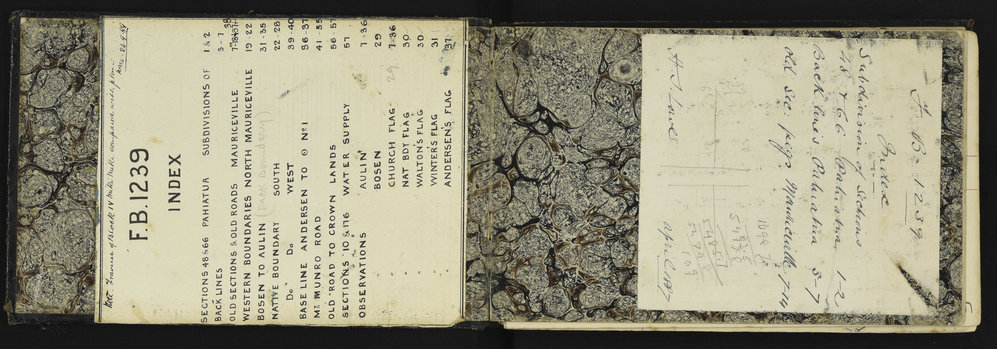 F.B. 1239
INDEX
SECTIONS 48 & 66 PAHIATUA SUBDIVISIONS OF 1 & 2
BACK LINES 3-7
OLD SECTIONS & OLD ROADS MAURICEVILLE 38
WESTERN BOUNDARIES NORTH MAURICEVILLE 19-22
BOSEN TO AULIN 31-35
NATIVE BOUNDARY SOUTH 22-28
Do Do WEST 39-40
BASE LINE ANDERSEN TO No 1 36-37
Mt MUNRO ROAD 41-55
OLD ROAD TO CROWN LANDS 56-57
SECTIONS 10 & 176 WATER SUPPLY 57
OBSERVATIONS AULIN 7-36
BOSEN 29
CHURCH FLAG 7-36
29
NAT BDY FLAG 30
WALTONS FLAG 30
WINTERS FLAG 31
ANDERSENS FLAG 37
F.B. 1239
Index
Subdivision of Sections
48 & 66 Pahiatua 1-2
Back lines Pahiatua 3-7
Old Sec: pegs Mauriceville 7-14
April 187